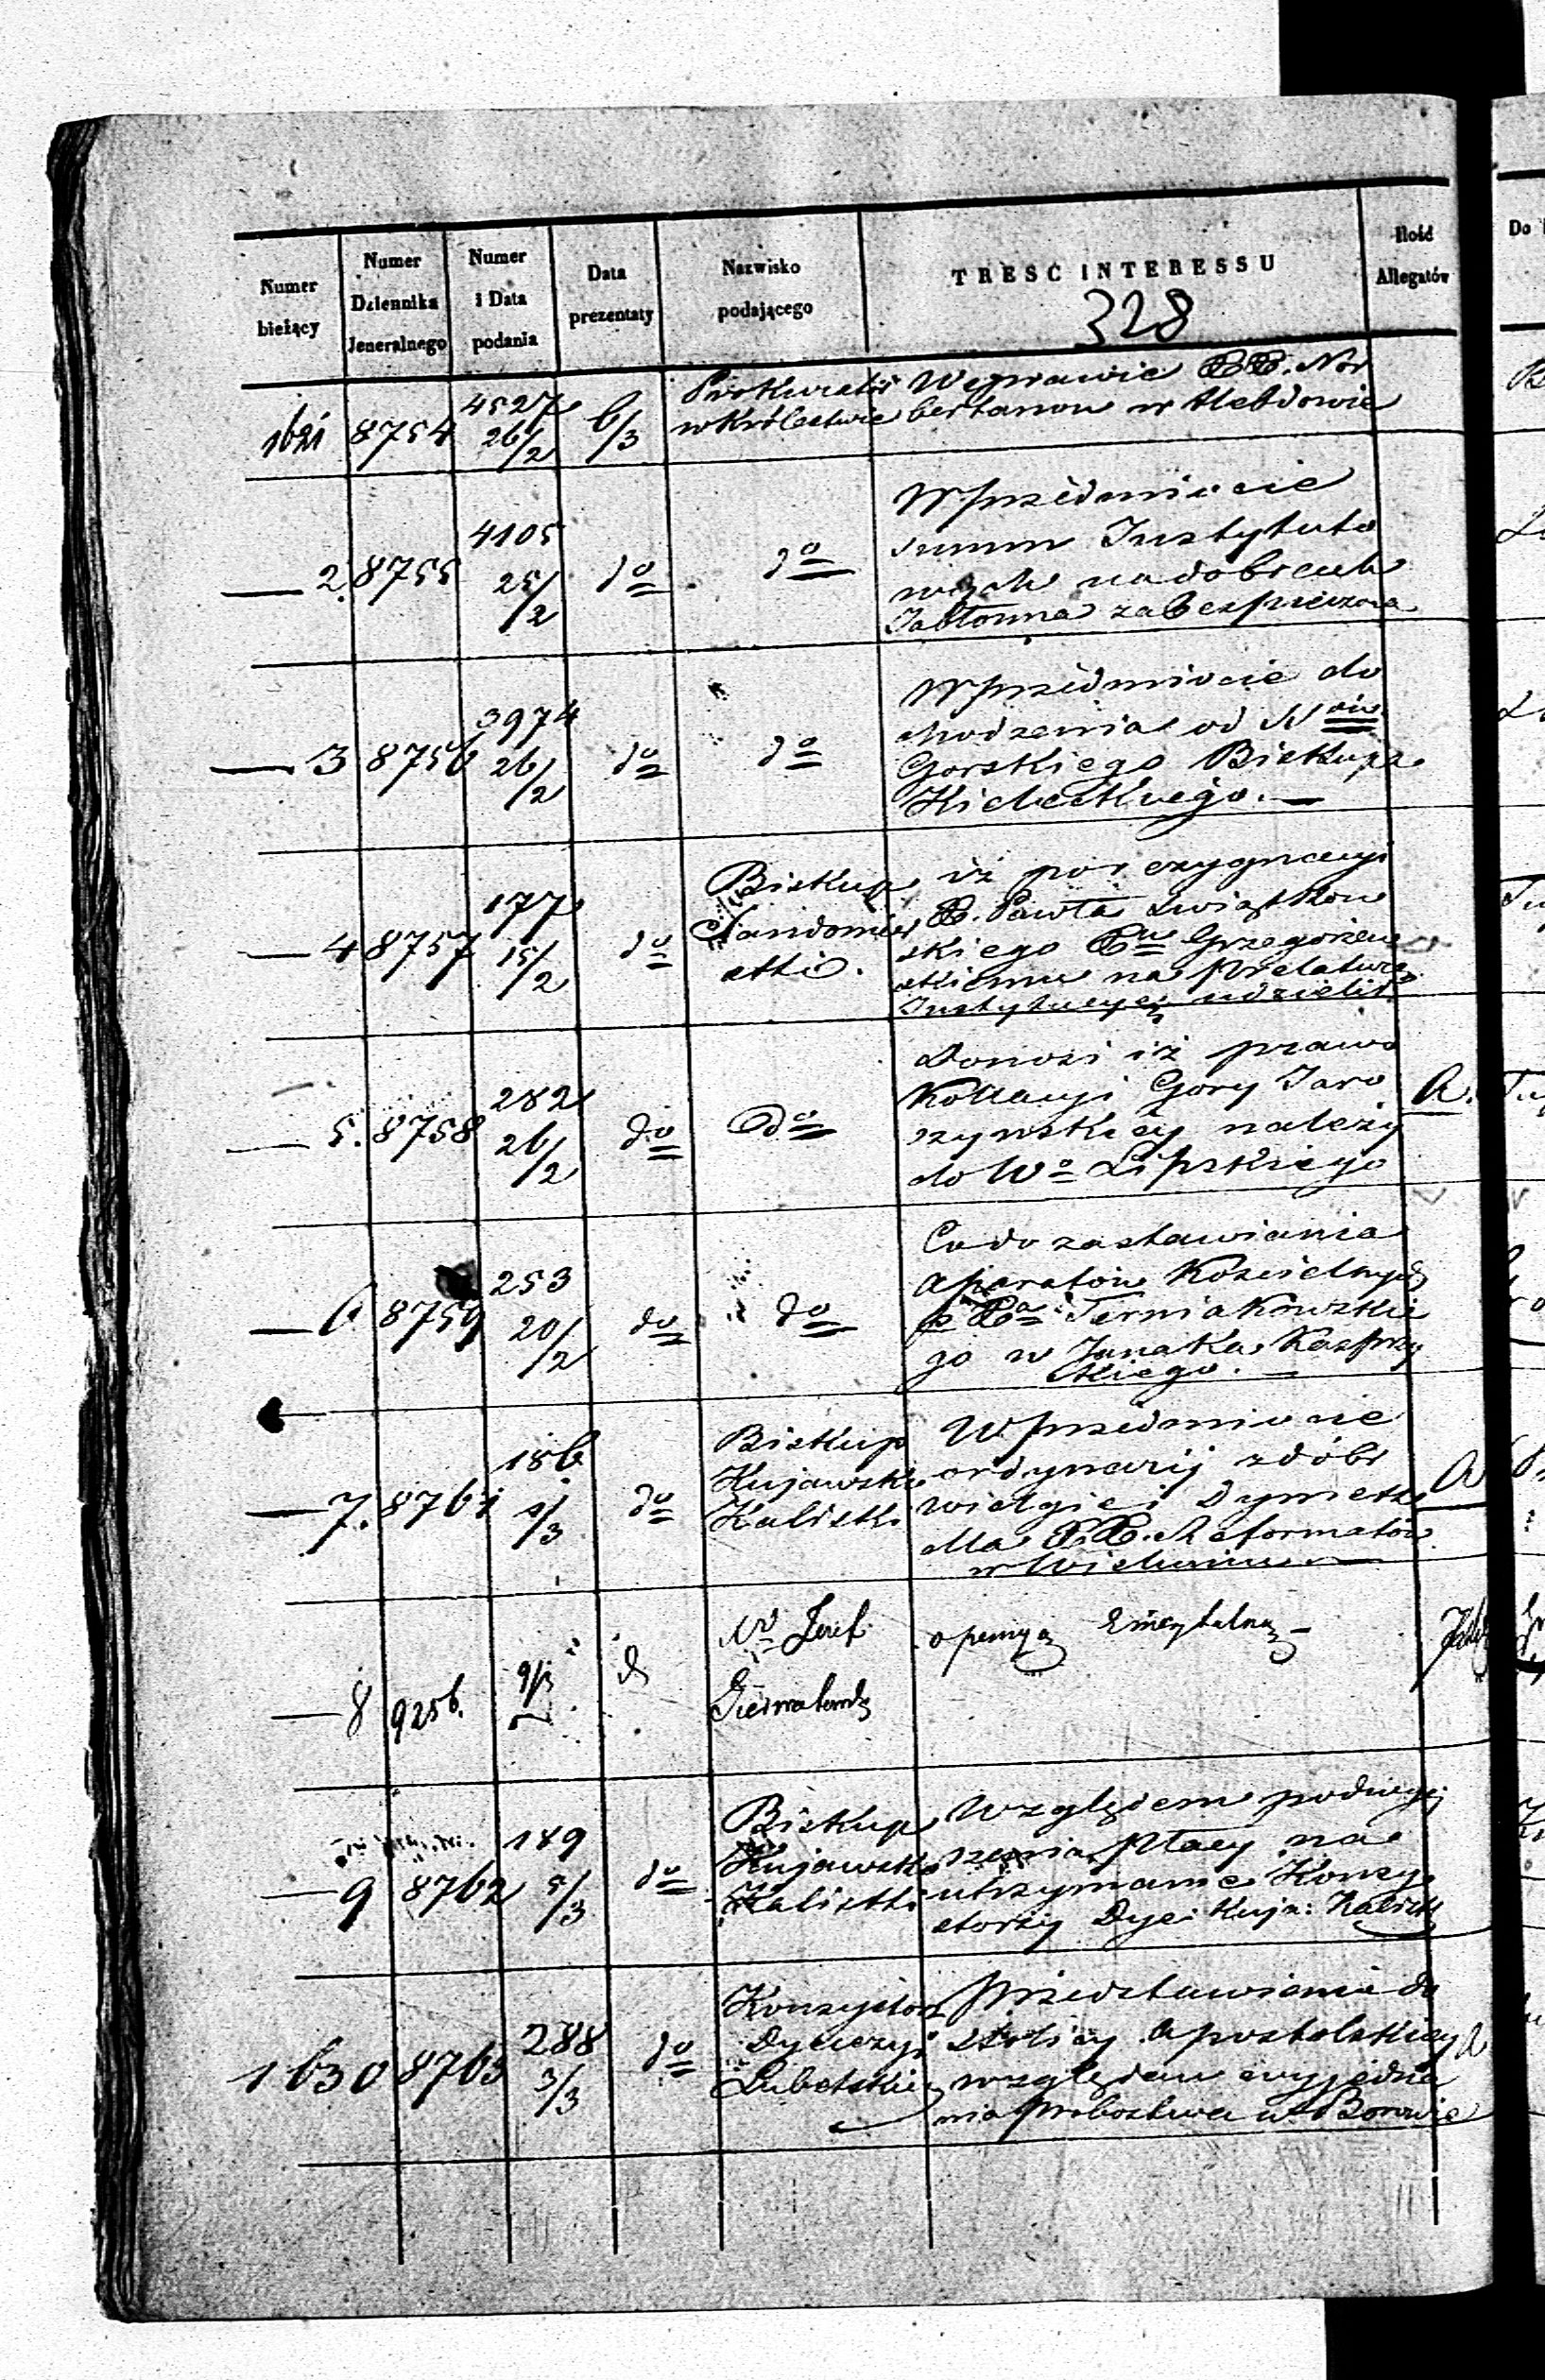 Numer bieżący
Numer Dziennika Jeneralnego
Numer i Data podania
Data prezentaty
Nazwisko podającego
TRESĆ INTERESSU
Ilość Allegatów
328
1621 8754 4527 26/2 6/3
Prokurator
w Królestwie
W sprawie XX. Nor
bertanow w Hebdowie
2. 8755 4105 25/2 do do
W przedmiocie
summ Instytuto
wych na dobrach
Jabłonna zabezpieczona
3 8756 3974 26/2 do do
W przedmiocie do
chodzenia od
Gorskiego Biskupa
Kieleckiego.
4 8757 177 15/2 do
Biskup
Sandomier
ski.
iż po rezygnacyi
X. Pawła Kwiatkow
skiego Xu Grzegorzew
skiemu na Prelaturę
Instytucyę udzielił
5. 8758 282 26/2 do do
Donosi iż prawo
Kollacyi Gory Jaro
szynskiey należy
do Wo Lipskiego
A.
6 8759 253 20/2 do do
Co do zastawiania
aparatów Kościelnych
p. Xa Terniakowskie
go w Janaka Kasprzy
ckiego.
7. 8761 186 /3 do
Biskup
Kujawsko
Kaliski
W przedmiocie
ordynaryi z dóbr
dla XX. Reformatów
w Wieluniu
A
8 9256. do
Józef
o pensyą Emerytalną
9 8762 189 5/3 do
Biskup
Kujawsko
Kaliski
Względem podwyż
szenia płacy na
utrzymanie Konsy
storzy Dyec: Kuja: Kalisk
1630 8763 288 3/3 do
Konsystorz
Dyecezyi
Lubelskiey
Przedstawienie do
Stolicy Apostolskiey
względem wyjedna
nia probostwa w Borowie